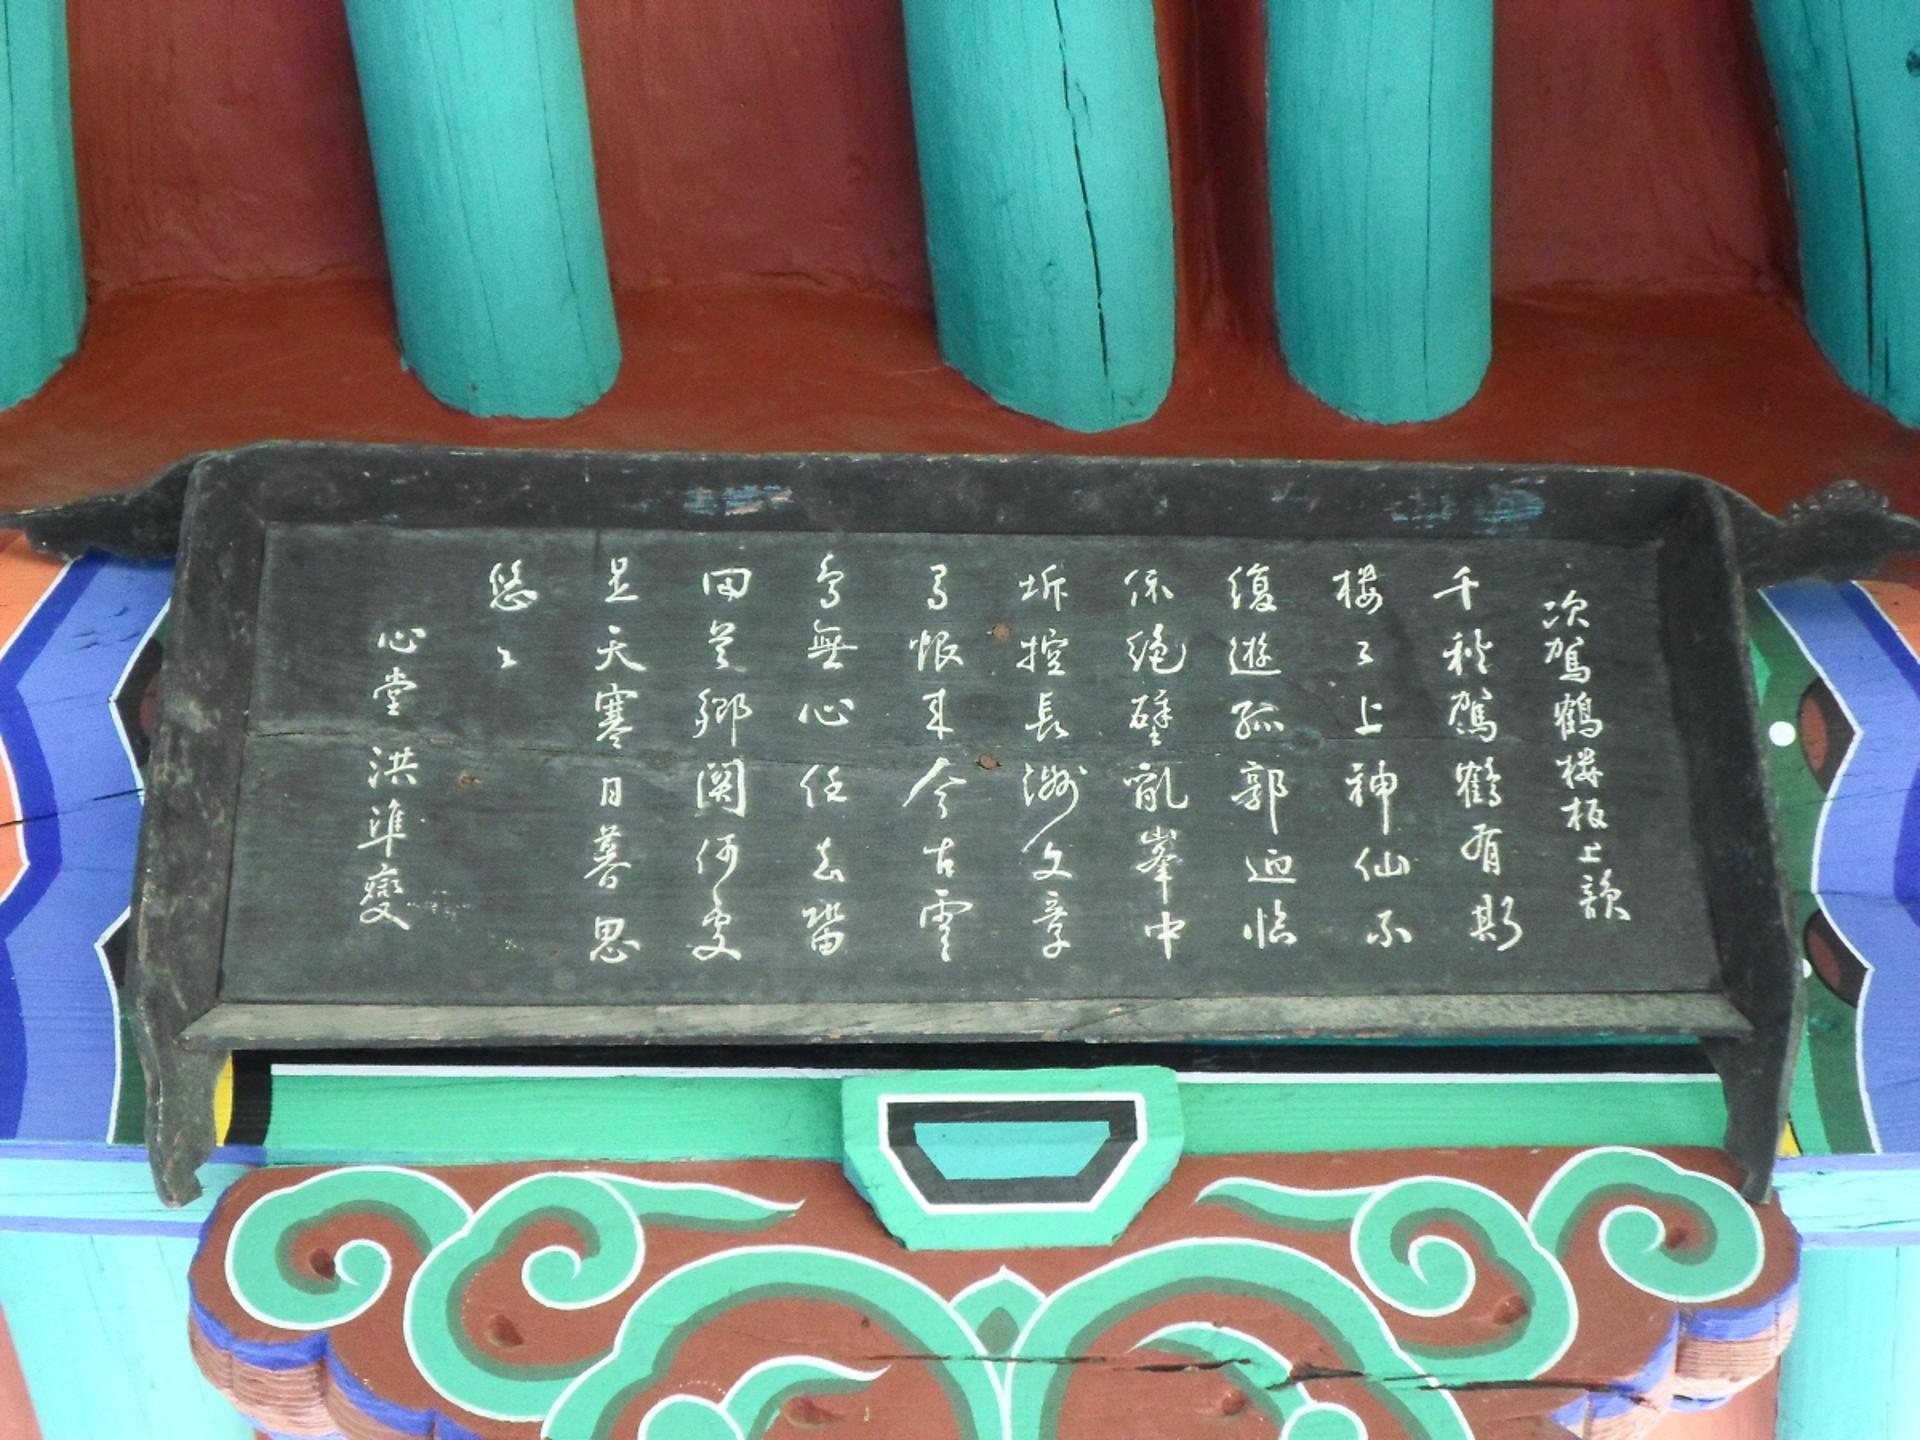 次駕鶴楼板上韻
千秋駕鶴有斯
楼〻上神仙不
復遊孤郭迥臨
依絶壁亂峯中
坼控長洲文章
恨來今古雲
鳥無心任去留
回首鄉關何處
是天寒日暮思
悠〻
心堂 洪準燮